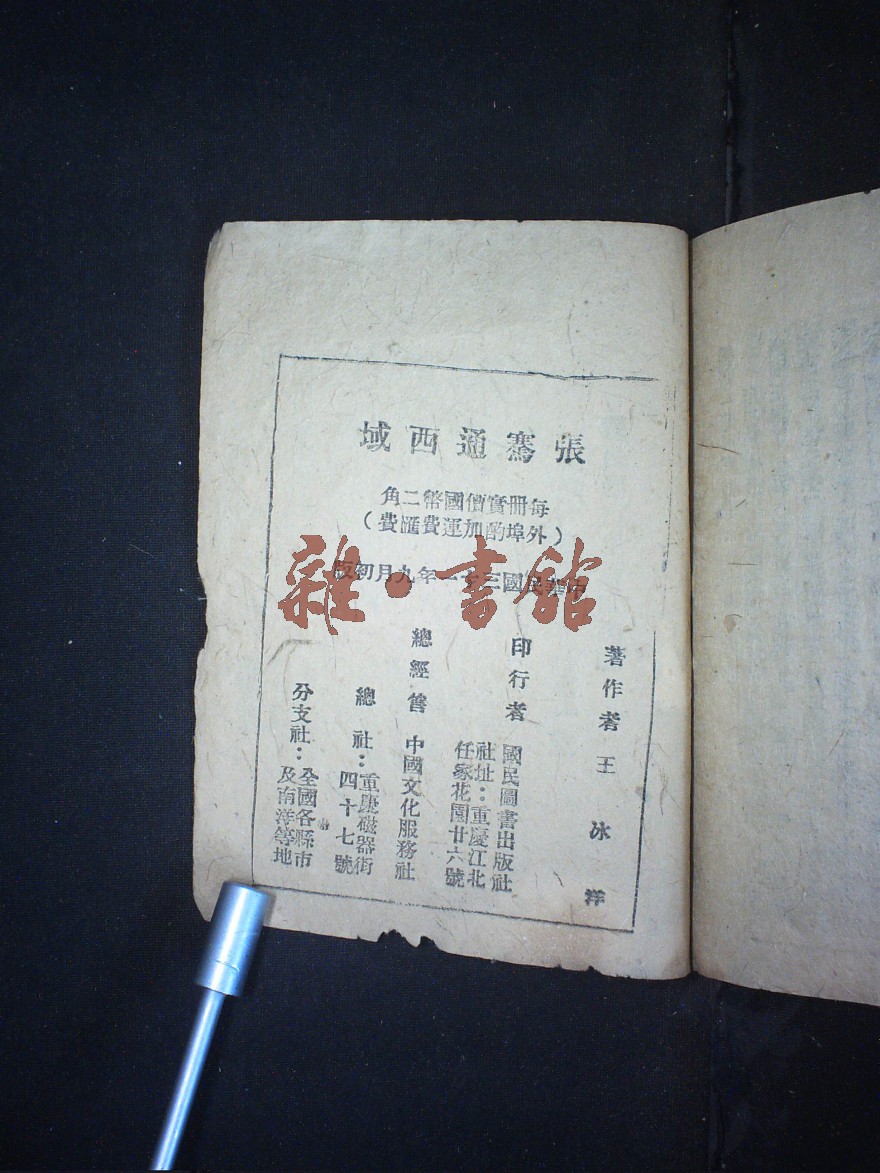 張騫通西域
每冊實價國幣二角
（外埠酌加運費匯費）
中華民國三年九月初版
雜·書館
著作者 王冰洋
印行者 國民圖書出版社
社址：重慶江北
任家花園廿六號
總經售 中國文化服務社
總社：重慶磁器街
四十七號
分支社：全國各縣市
及南洋等地